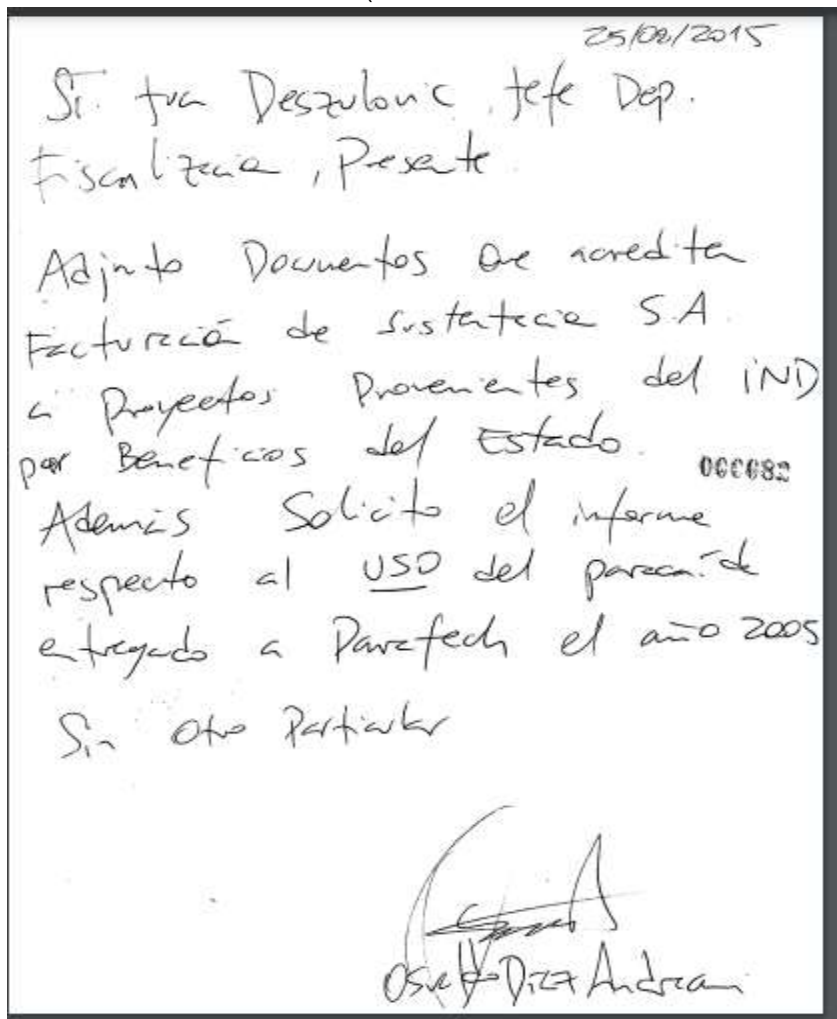 25/02/2015
Sr. Deszulovic, Jefe Dep.
Fiscalización, Presente.
Adjunto Documentos Que acreditan
Facturación de Sustentacia S.A.
a Proyectos Provenientes del IND
por Beneficios del Estado.
000082
Además Solicito el informe
respecto al USO del
entregado a Paratech el año 2005
Sin Otro Particular
Osvaldo Diaz Andreani